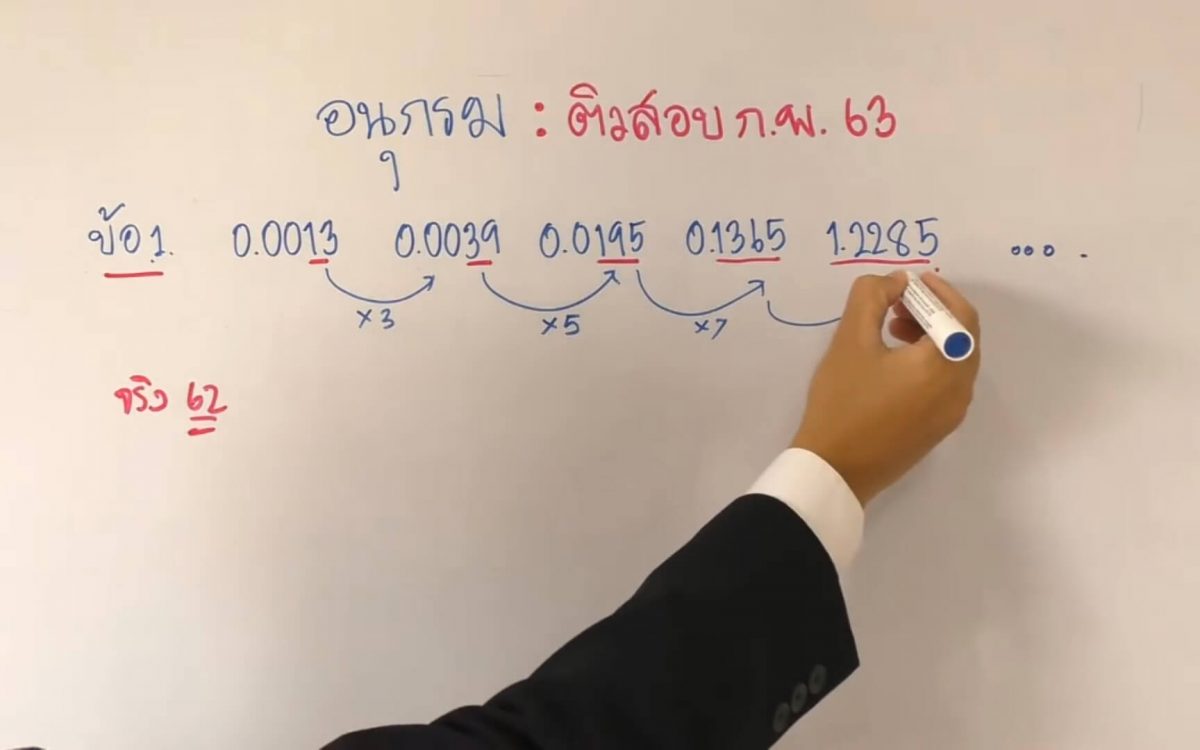 อนุกรม : ติวสอบ ก.พ. 63
ข้อ1. 0.0013 0.0039 0.0195 0.1365 1.2285 ... .
×3 ×5 ×7
จริง 62